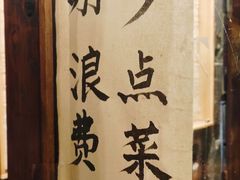 点菜
浪费